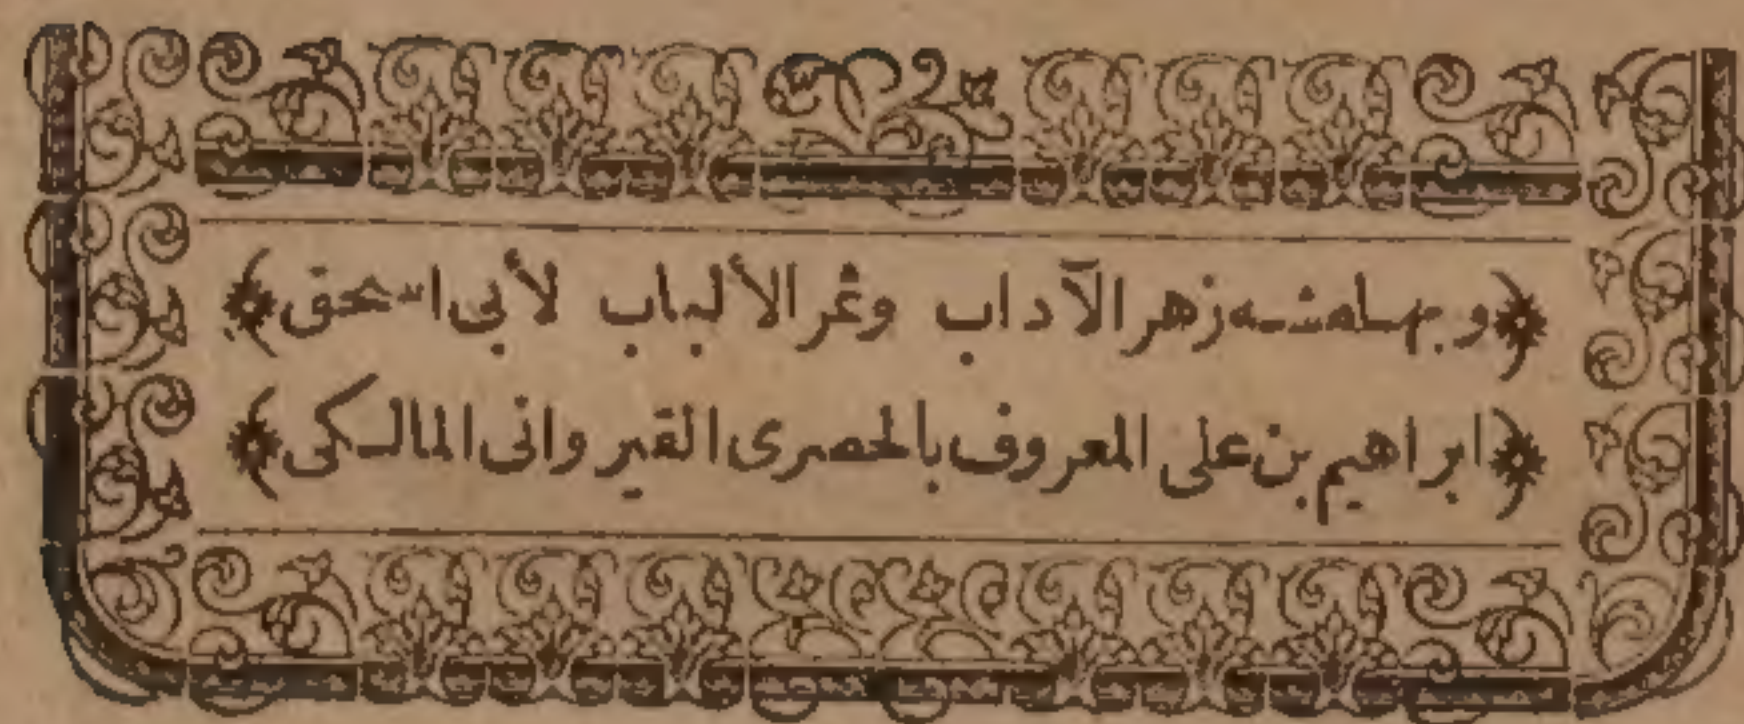 ﴿وبهامشه زهر الآداب وثمر الألباب لأبي اسحق﴾
﴿ابراهيم بن على المعروف بالحصرى القيروانى المالكى﴾